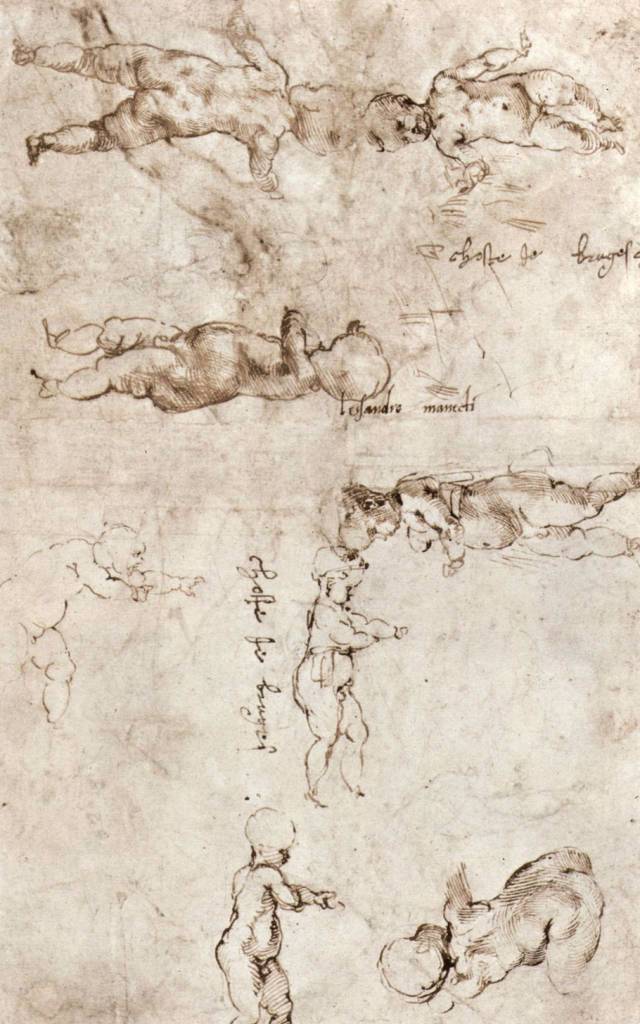 choſte de bruges
leſandro manecti
choſte de bruges